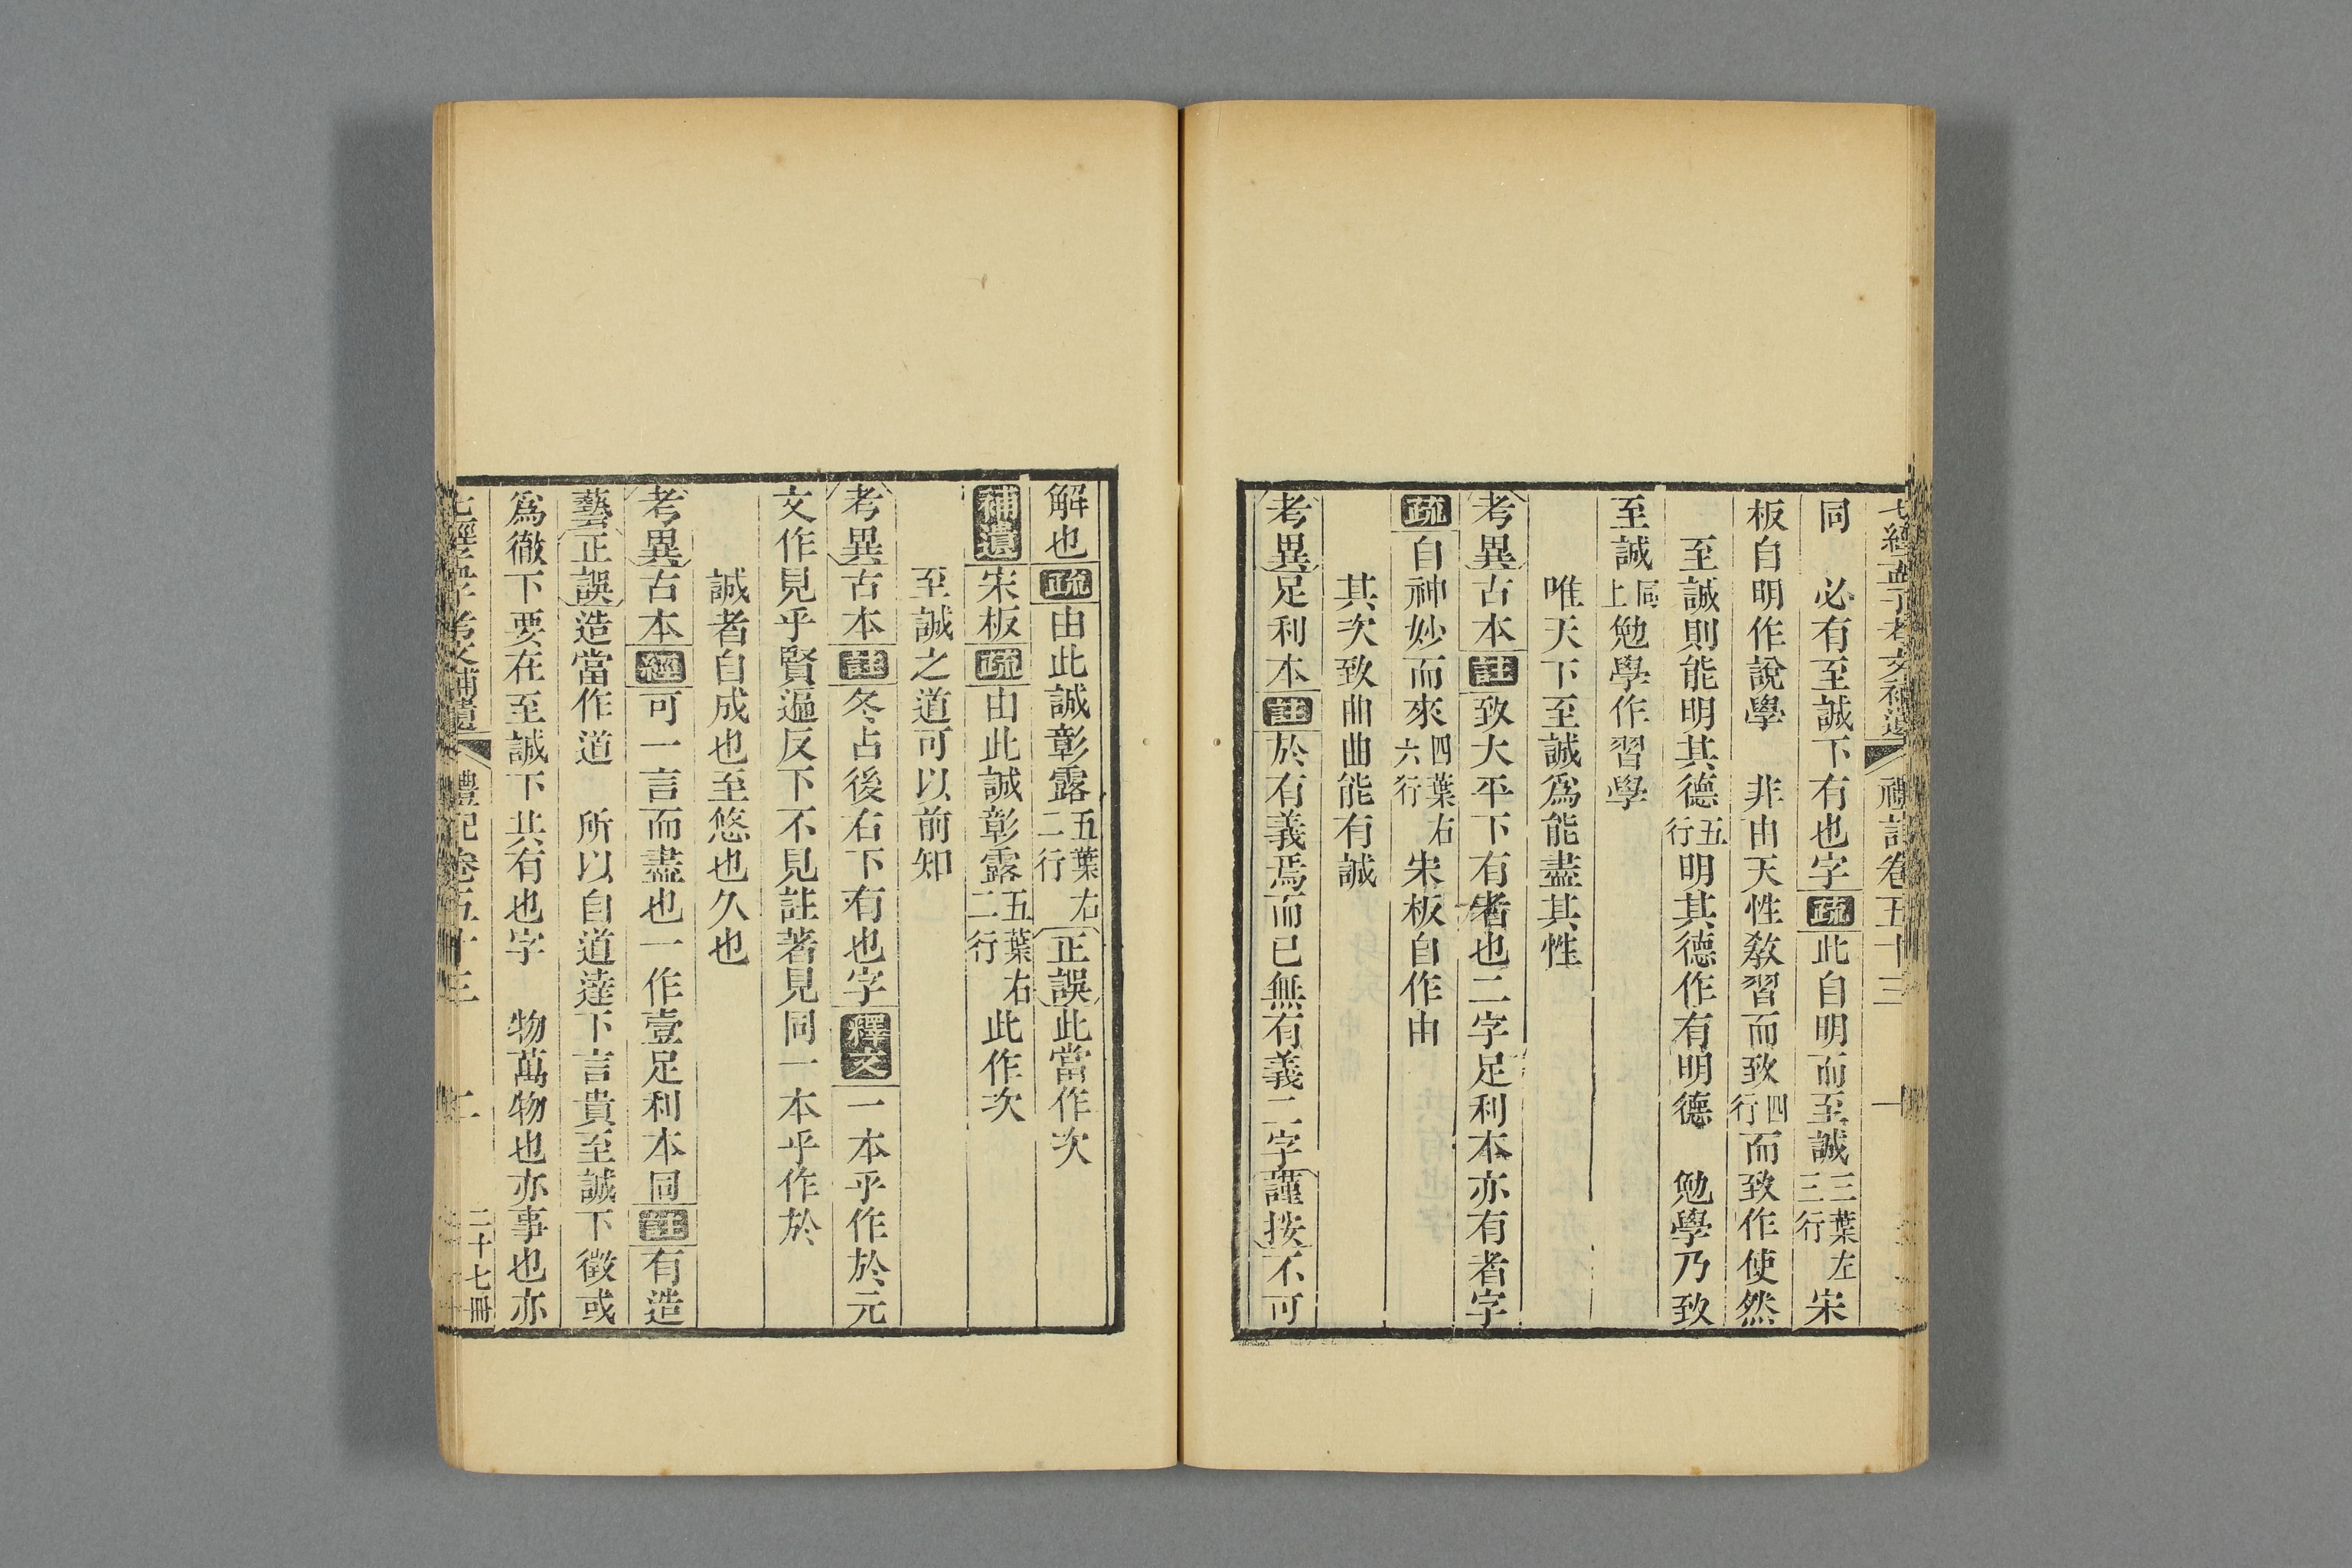 七經孟子考文補遺 禮記卷五十三 一
同 必有至誠下有也字疏此自明而至誠三葉左三行宋
板自明作說學 非由天性敎習而致四行而致作使然
至誠則能明其德五行明其德作有明德 勉學乃致
至誠同上勉學作習學
唯天下至誠爲能盡其性
考異古本註致大平下有者也二字足利本亦有者字
疏自神妙而來四葉右六行宋板自作由
其次致曲曲能有誠
考異足利本註於有義焉而已無有義二字謹按不可
解也疏由此誠彰露五葉右二行正誤此當作次
補遺宋板疏由此誠彰露五葉右二行此作次
至誠之道可以前知
考異古本註冬占後右下有也字釋文一本乎作於元
文作見乎賢遍反下不見註著見同一本乎作於
誠者自成也至悠也久也
考異古本經可一言而盡也一作壹足利本同註有造
藝正誤造當作道 所以自道達下言貴至誠下徵或
爲徹下要在至誠下共有也字 物萬物也亦事也亦
七經孟子考文補遺 禮記卷五十三 二 二十七冊